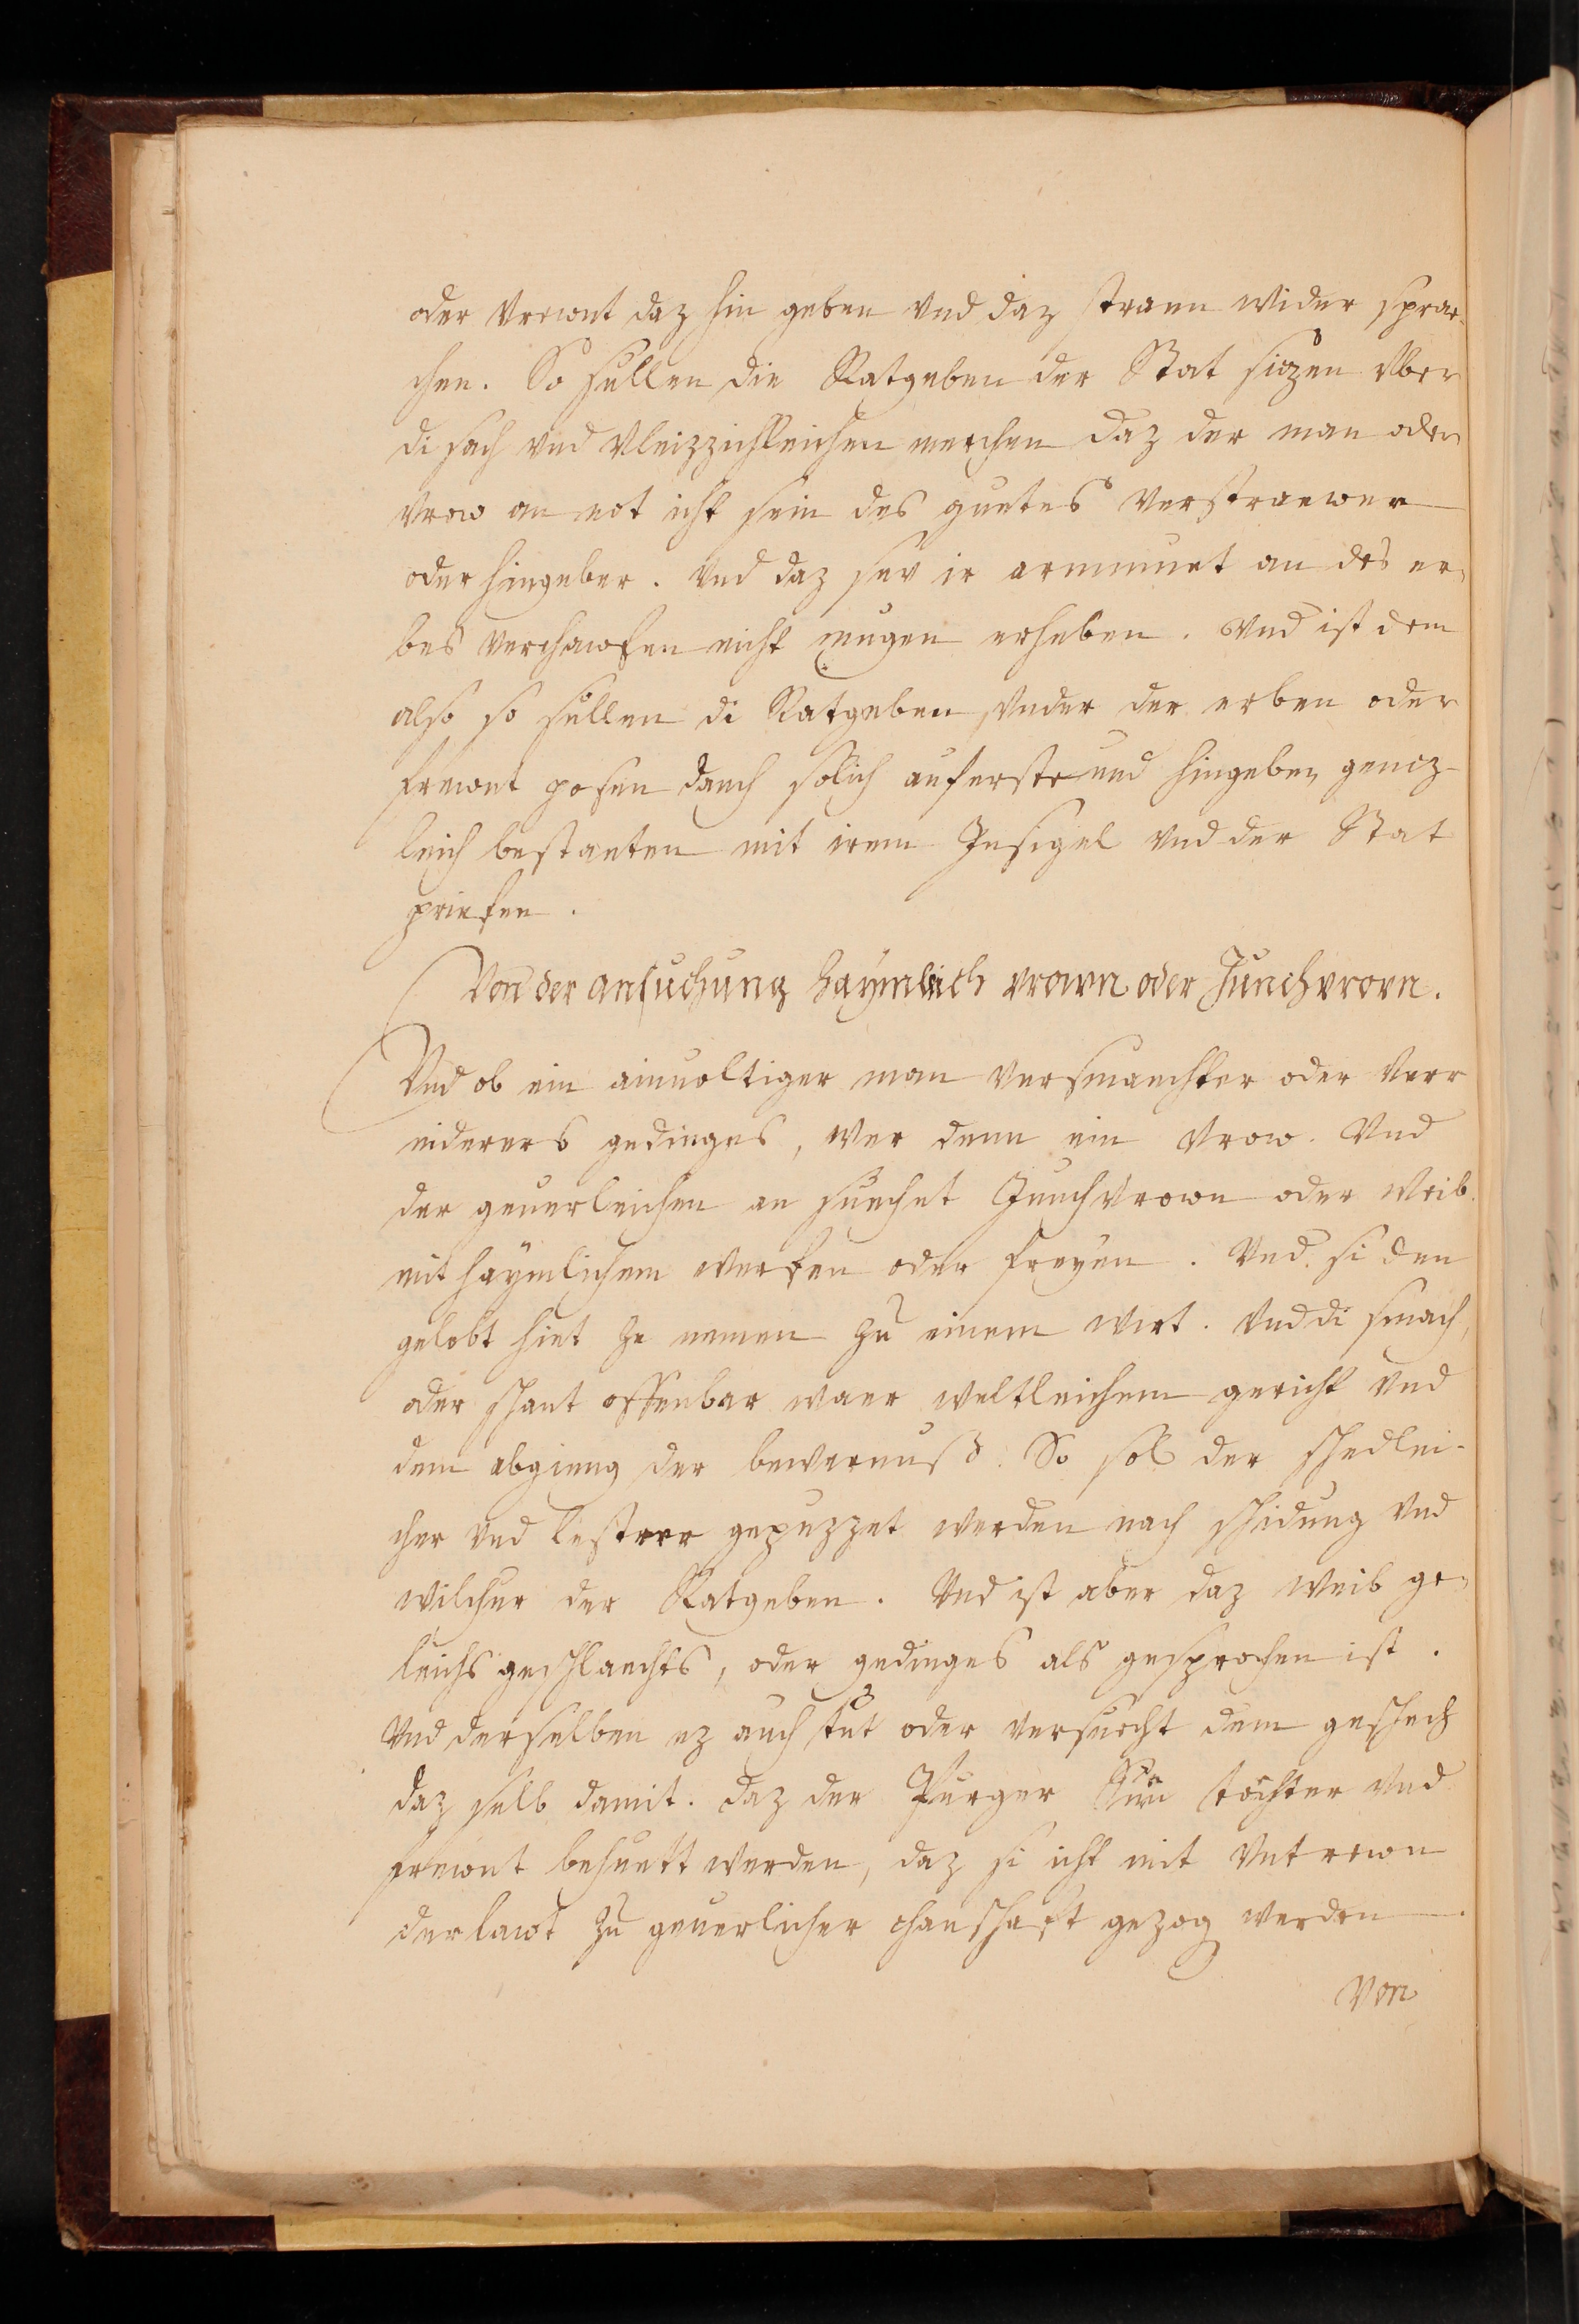 oder vrewnt daz hin geben vnd daz straun wider sprae-
chen. So sullen die Ratgeben der Stat siczen vber
di sach vnd vleizzichleichen merchen daz der man oder
vrow an not icht sein des guetes verstraewer
oder hingeber. Vnd daz sev ir armuet an des er-
bes verchawfen nicht mugen erheben. Vnd ist dem
also so sullen di Ratgeben, wider der erben oder
frewnt posen danch sölich aufersteund hingeben gencz-
leich bestaeten mit irem Insigel vnd der Stat
priefen.
Von der ansuchung haymleich vrown oder Junchvrown.
Vnd ob ein ainualtiger man versmaechter oder verr
niderers gedinges, wer denn ein vrow. Vnd
der geuerleichen an suechet Junchvrown oder weib
mit haymlichem werken oder freyen. Vnd si den
gelobt hiet ze nemen zu einem wirt. Vnd di smach,
oder schant offenbar waer weltleichem gericht vnd
dem abgieng der bewernuss. So sol der schedlei-
cher vnd lestrer gepuzzet werden nach schidung vnd
wilchur der Ratgeben. Vnd ist aber daz weib ge-
leichs geschlaechts, oder gedinges als gesprochen ist.
Vnd derselben ez auch tut oder versuecht dem geschech
daz selb damit. daz der Purger Sun töchter vnd
frewnt behuett werden, daz si icht mit vntrewn
der lawt zu geuerlicher chanschaft gezog werden.
Von